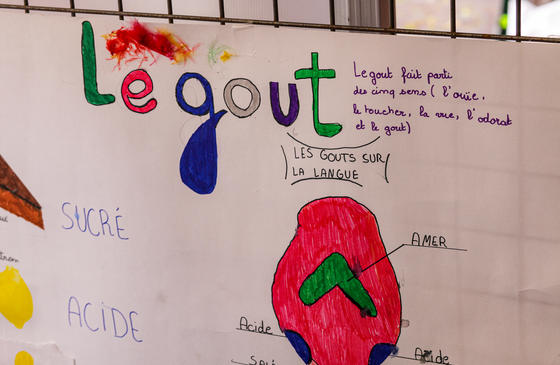 Le gout
Le gout fait parti
des cinq sens ( l'ouïe,
le toucher, la vue, l'odorat
et le gout)
LES GOUTS SUR
LA LANGUE
SUCRÉ
AMER
ACIDE
Acide
Acide